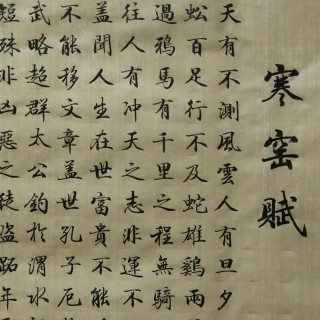 寒窑賦
天有不測風雲人有旦夕
蚣百足行不及蛇雄鷄兩
過鴉馬有千里之程無騎
往人有冲天之志非運不
蓋聞人生在世富貴不能
不能移文章蓋世孔子厄
武略超群太公釣於渭水
短殊非凶惡之徒盜跖年